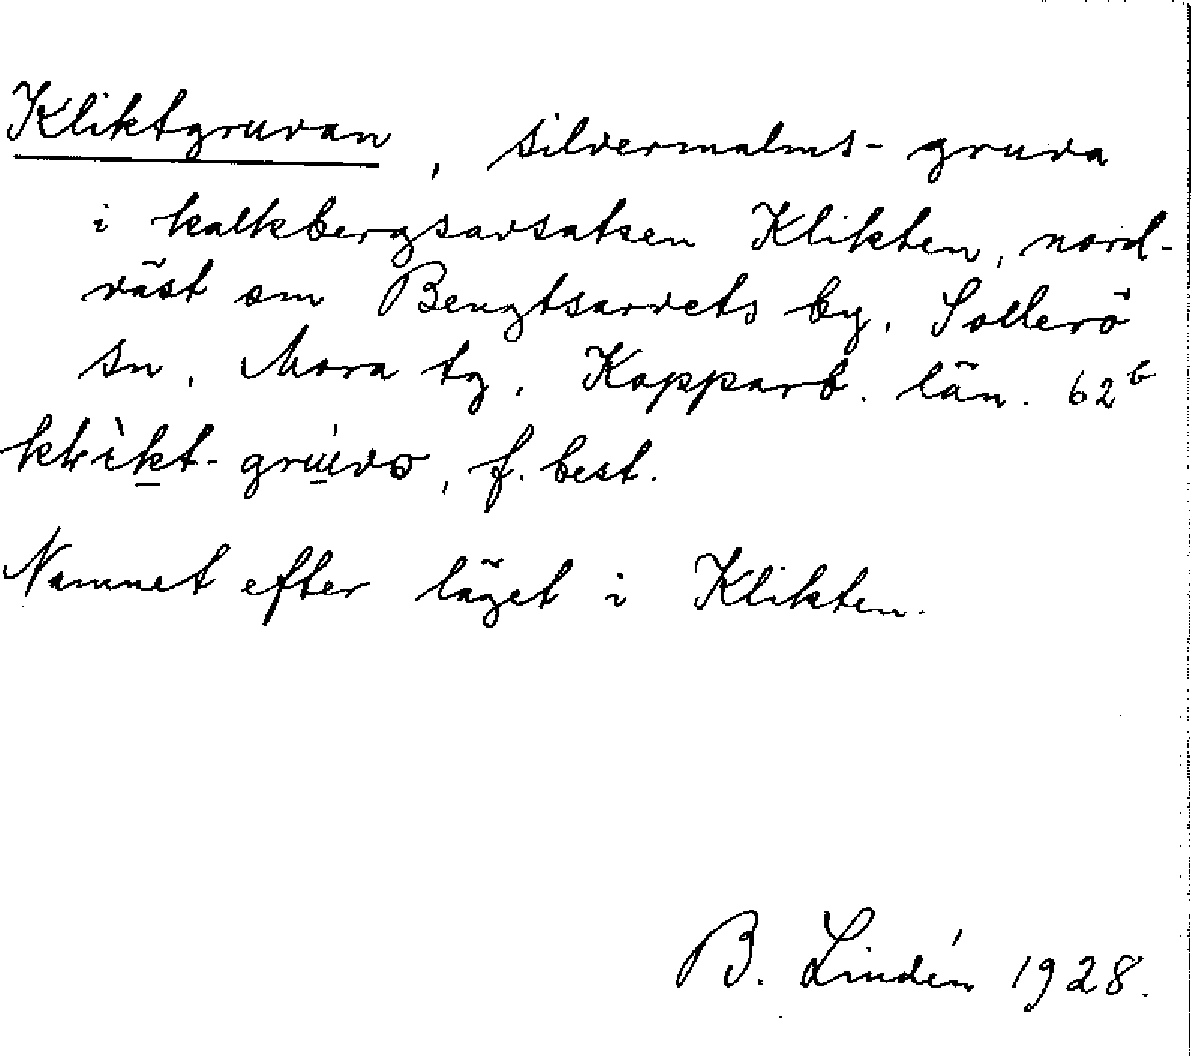 Kliktgruvan, silvermalms-gruva
i kalkbergsavsatsen Klikten, nord-
väst om Bengtsarvets by. Sollerö
sn, Mora tg, Kopparb. län. 62b
f. best.
Namnet efter läget i Klikten.
B. Lindén 1928.